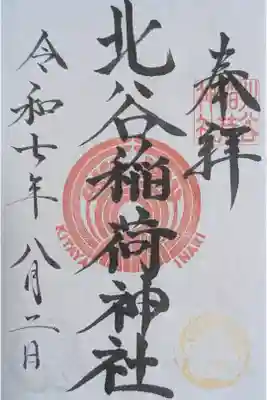 奉拝
北谷稲荷神社
KITAYA INARI
令和七年 八月二日